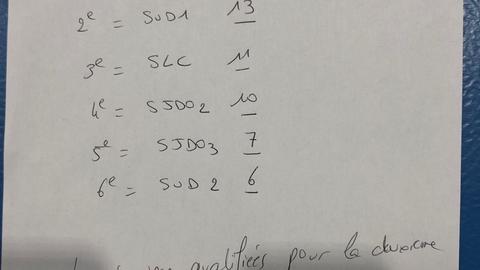 2e = SUD1 13
3e = SLC 11
4e = SJDO2 10
5e = SJDO3 7
6e = SUD 2 6
qualifiées pour la deuxième